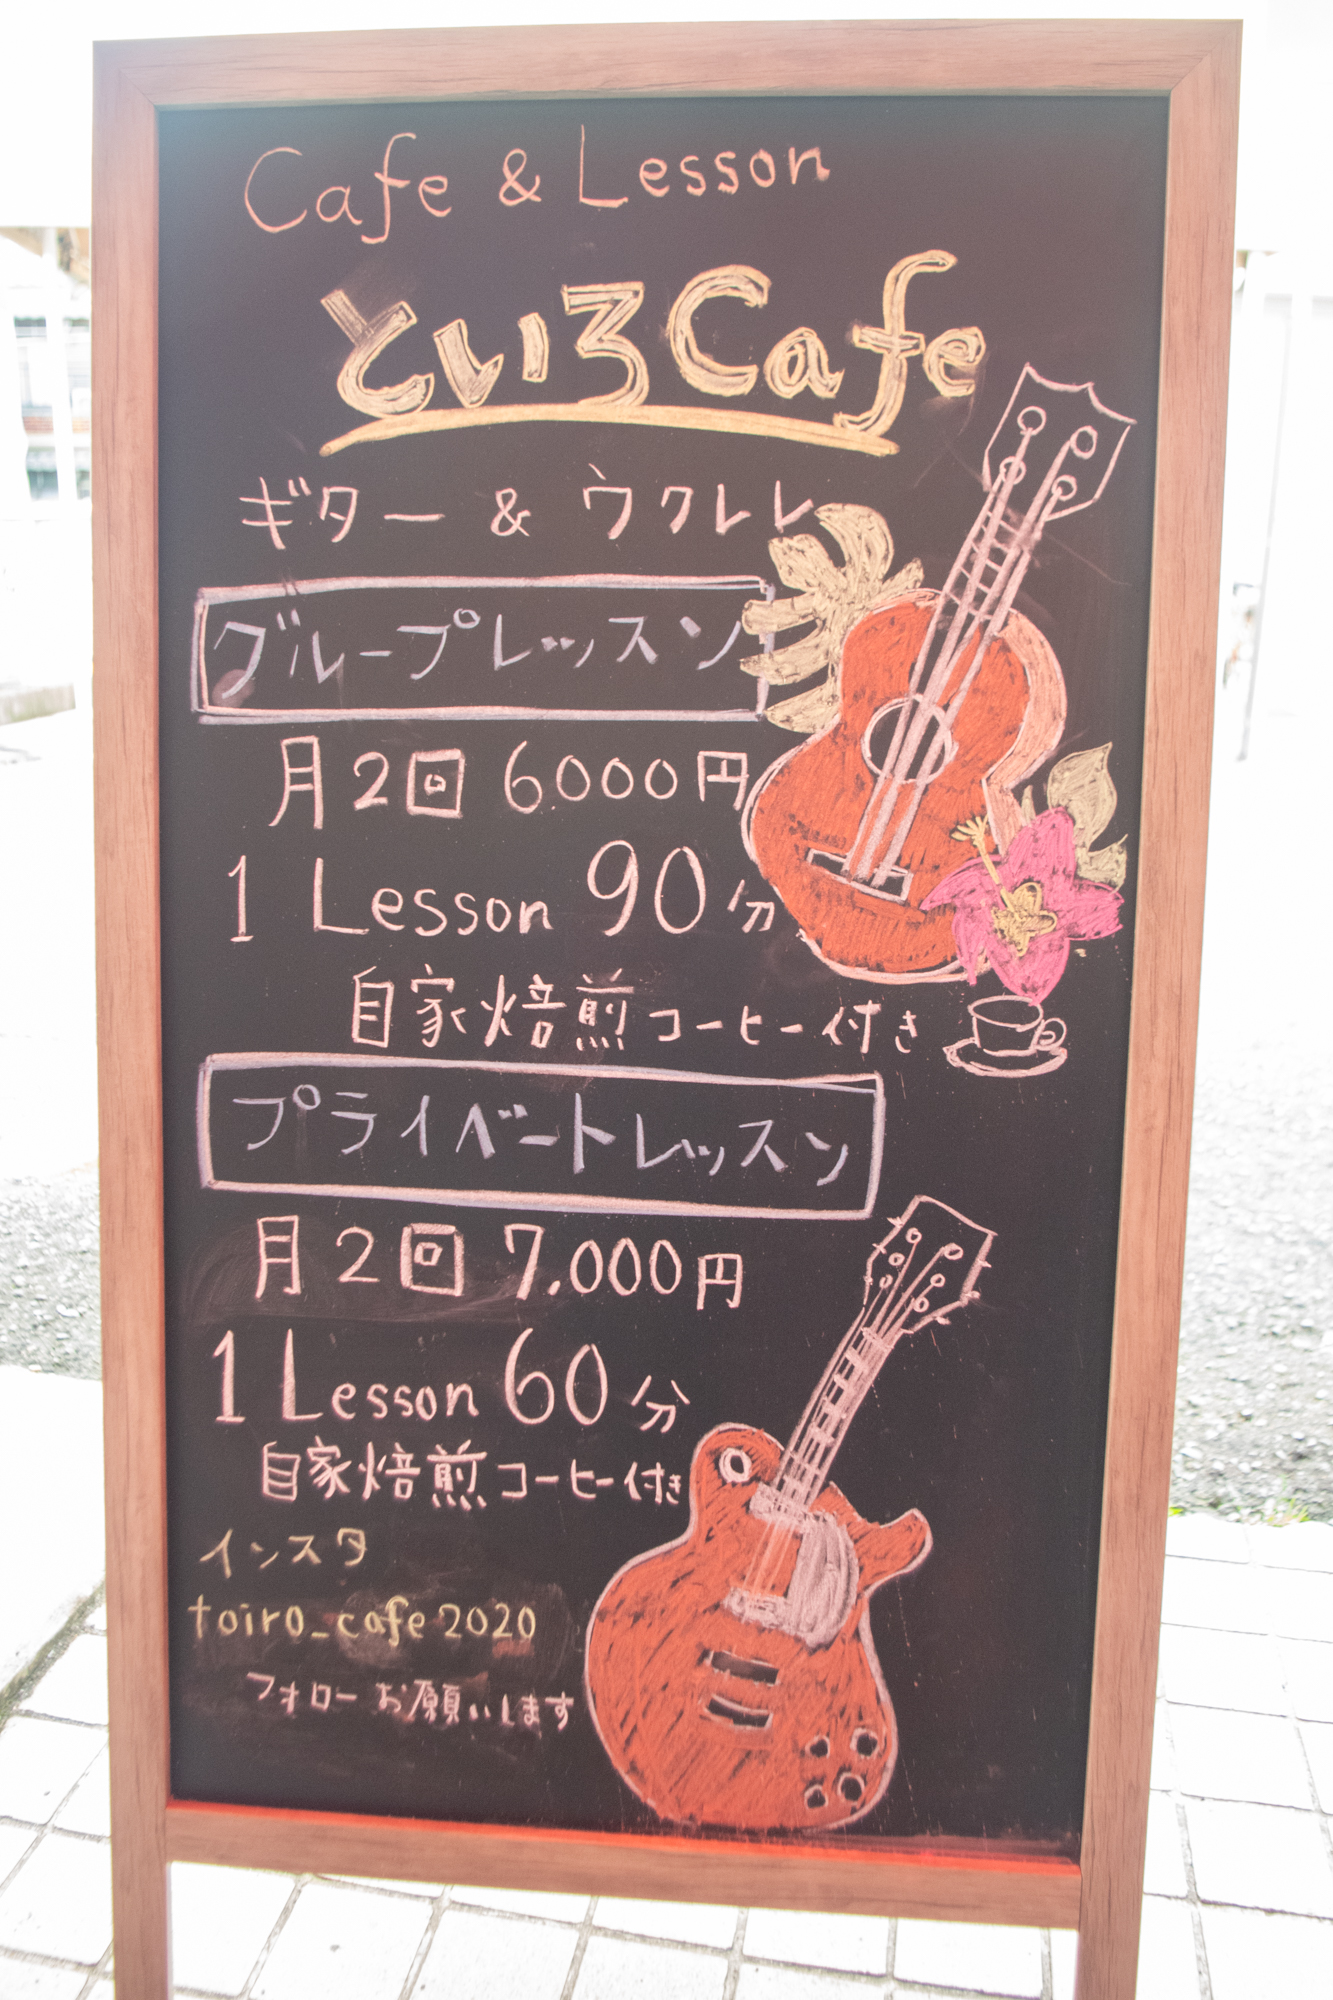 Cafe & Lesson
といろCafe
ギター & ウクレレ
グループレッスン
月2回 6.000円
1 Lesson 90分
自家焙煎コーヒー付き
プライベートレッスン
月2回 7.000円
1 Lesson 60分
自家焙煎コーヒー付き
インスタ
toiro_cafe2020
フォローお願いします